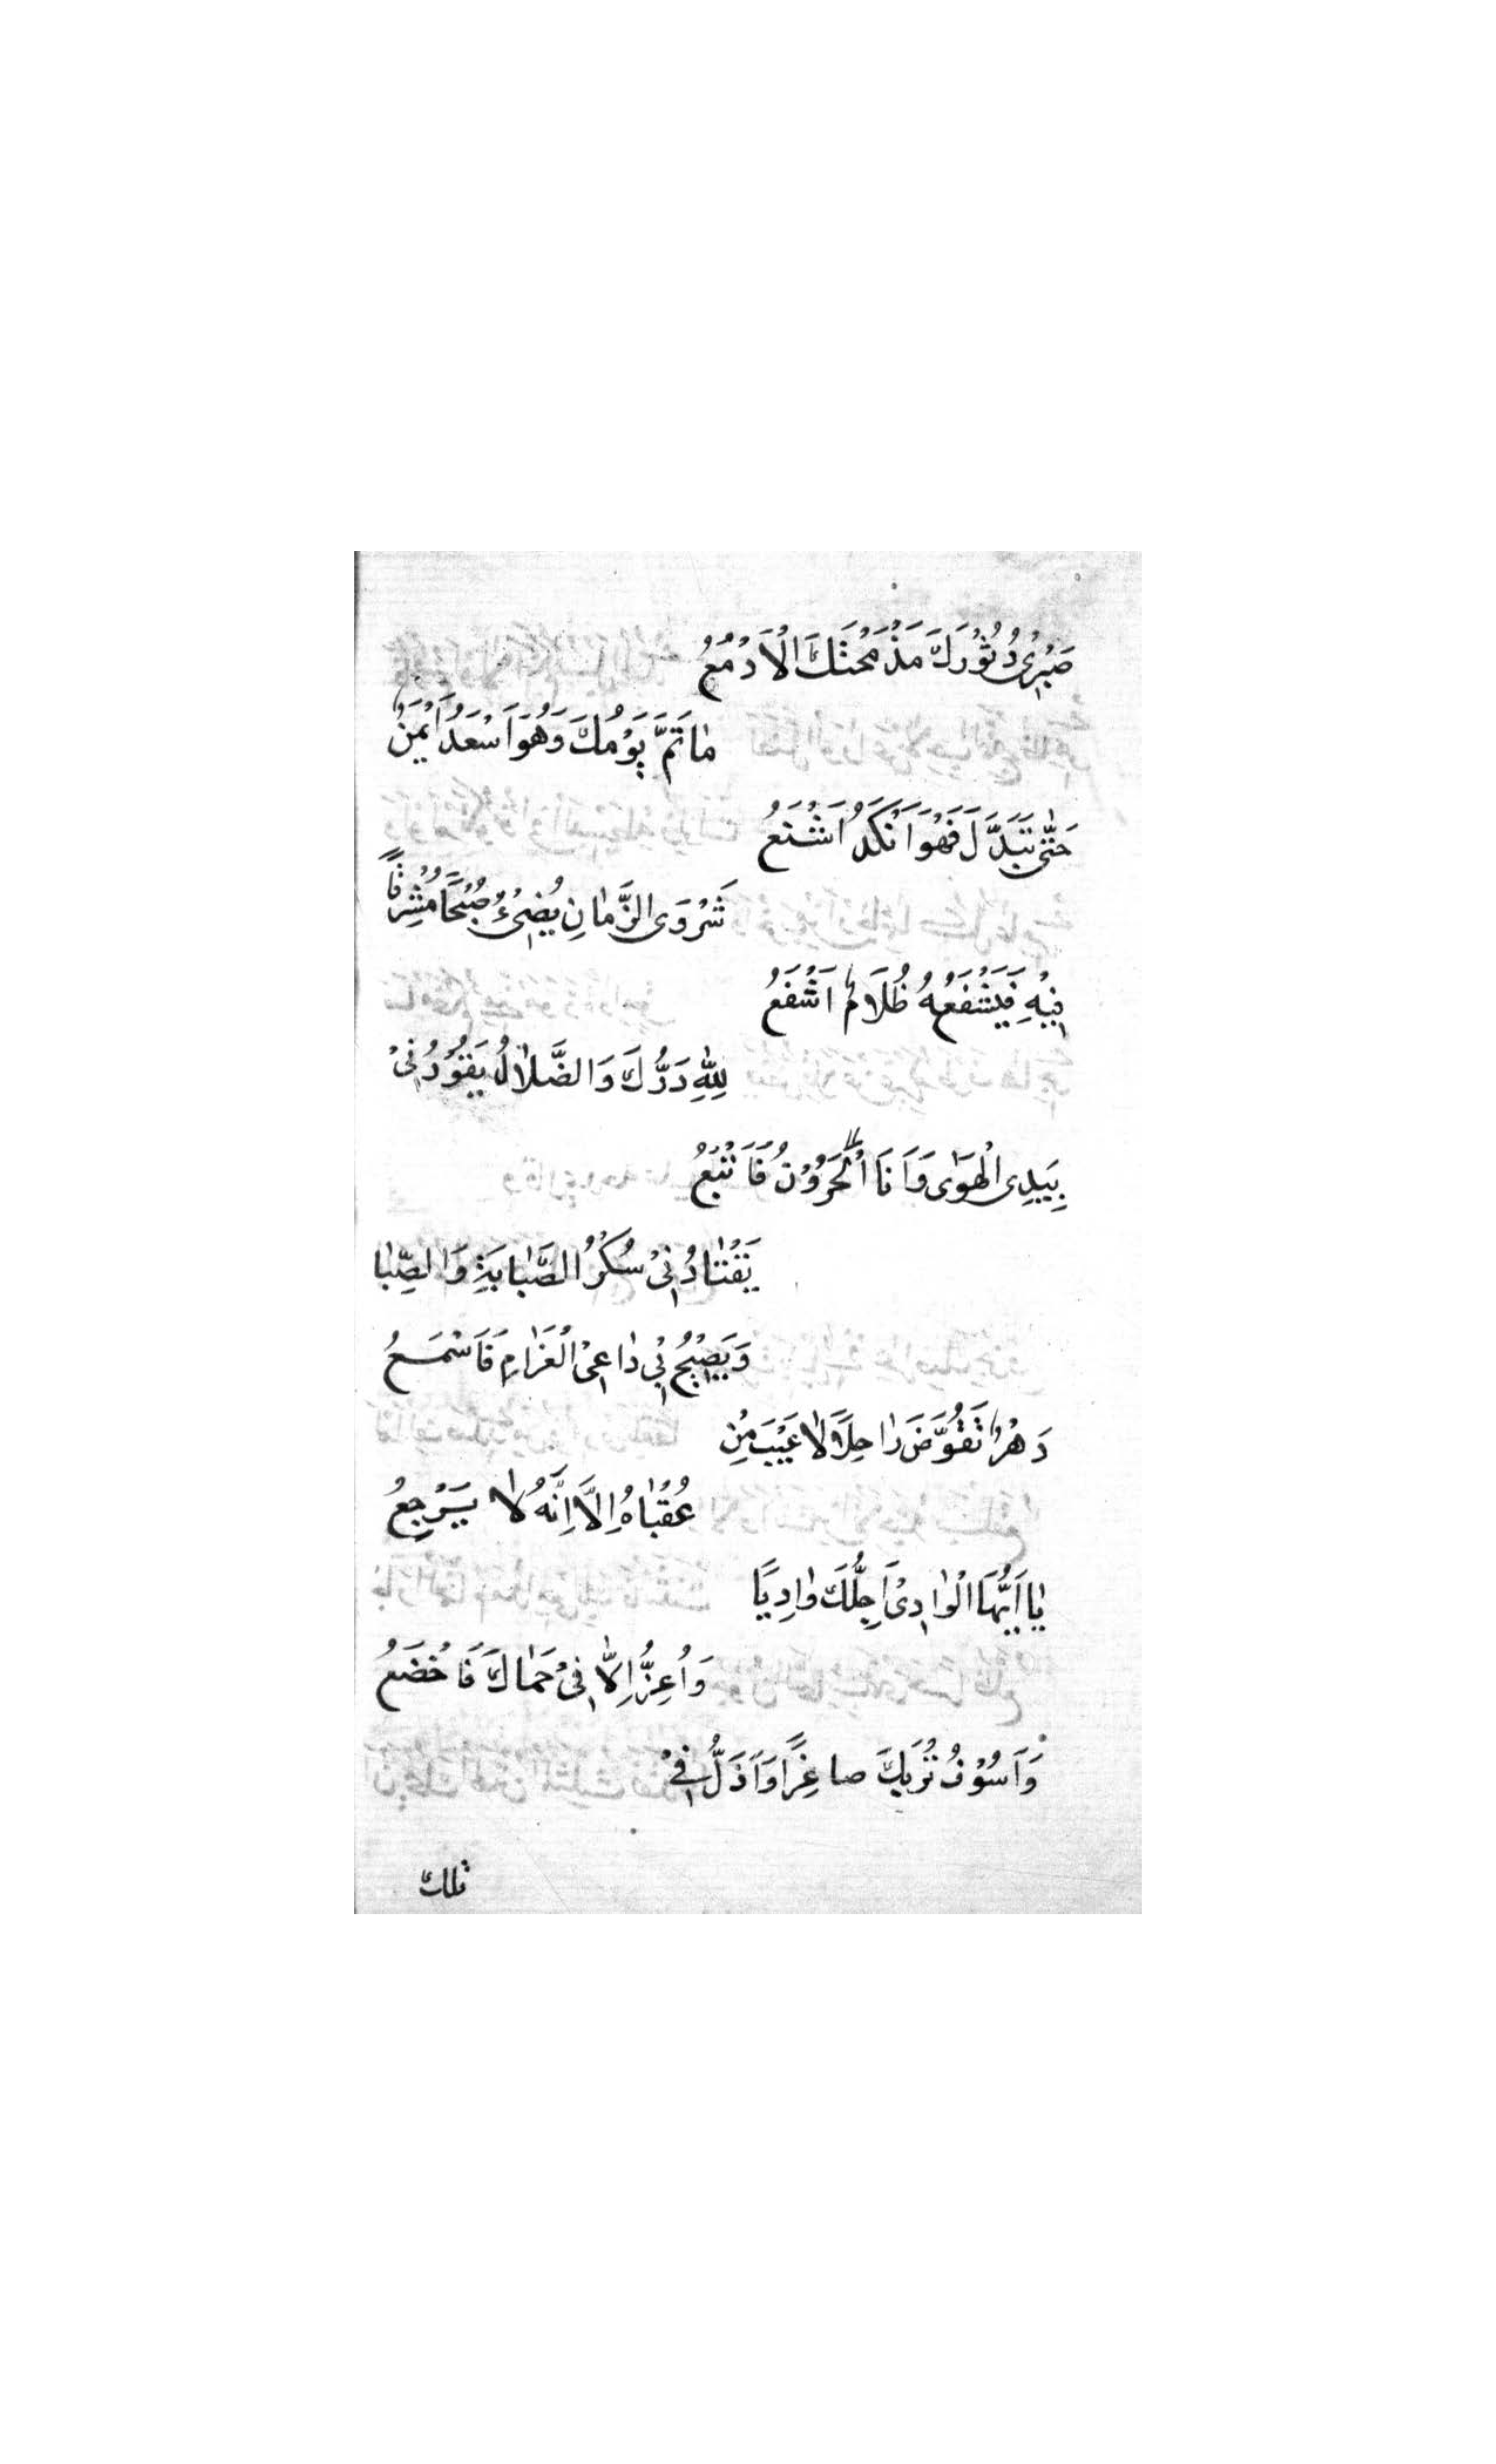 صَبْرِى دُثُوْرَكَ مَذْ مَحَتْكَ الْاَدْمُعُ
مٰا تَمَّ يَوْمُكَ وَهُوَ اَسْعَدُ اَيْمَنُ
حَتّٰى تَبَدَّلَ فَهْوَ اَنْكَدُ اَشْنَعُ
شَرْوَى الزَّمٰانِ يُضِىْءُ صُبْحًا مُشْرِقًا
فِيْهِ فَيَشْفَعُهُ ظُلَامٌ اَشْفَعُ
لِلّٰهِ دَرُّكَ وَالضَّلٰالُ يَقُوْدُنِىْ
بِيَدِى الْهَوٰى وَاَنَا الْحَرُوْنُ فَاَتْبَعُ
يَقْتٰادُنِىْ سُكْرُ الصَّبٰابَةِ وَالصِّبٰا
وَيَصِيْحُ بِىْ دٰاعِىْ الْغَرٰامِ فَاَسْمَعُ
دَهْرٌ تَقَوَّضَ رٰاحِلًا لٰا عَيْبَ مِنْ
عُقْبٰاهُ اِلَّا اِنَّهُ لٰا يَرْجِعُ
يٰا اَيُّهَا الْوٰادِىْ اَجِلُّكَ وٰادِيًا
وَاُعِزُّ اِلّٰا فِىْ حَمٰاكَ فَاَخْضَعُ
وَاَسُوْفُ تُرْبَكَ صاغِرًا وَاَذَلُّ فِىْ
تلك